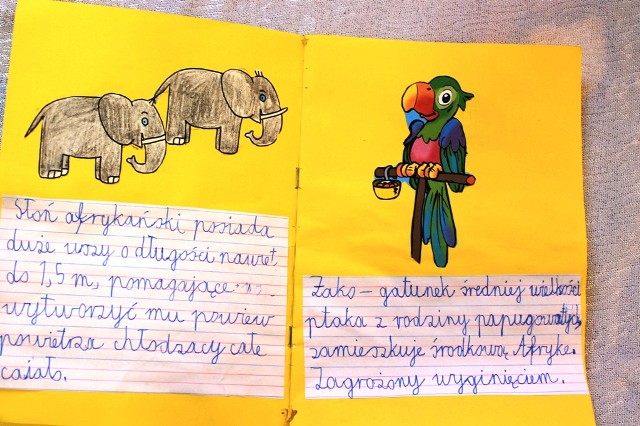 Słoń afrykański posiada
duże uszy o długości nawet
do 1,5 m, pomagające
wytworzyć mu powiew
powietrza chłodzący całe
ciało.
Żako – gatunek średniej wielkości
ptaka z rodziny papugowatych,
zamieszkuje środkową Afrykę.
Zagrożony wyginięciem.